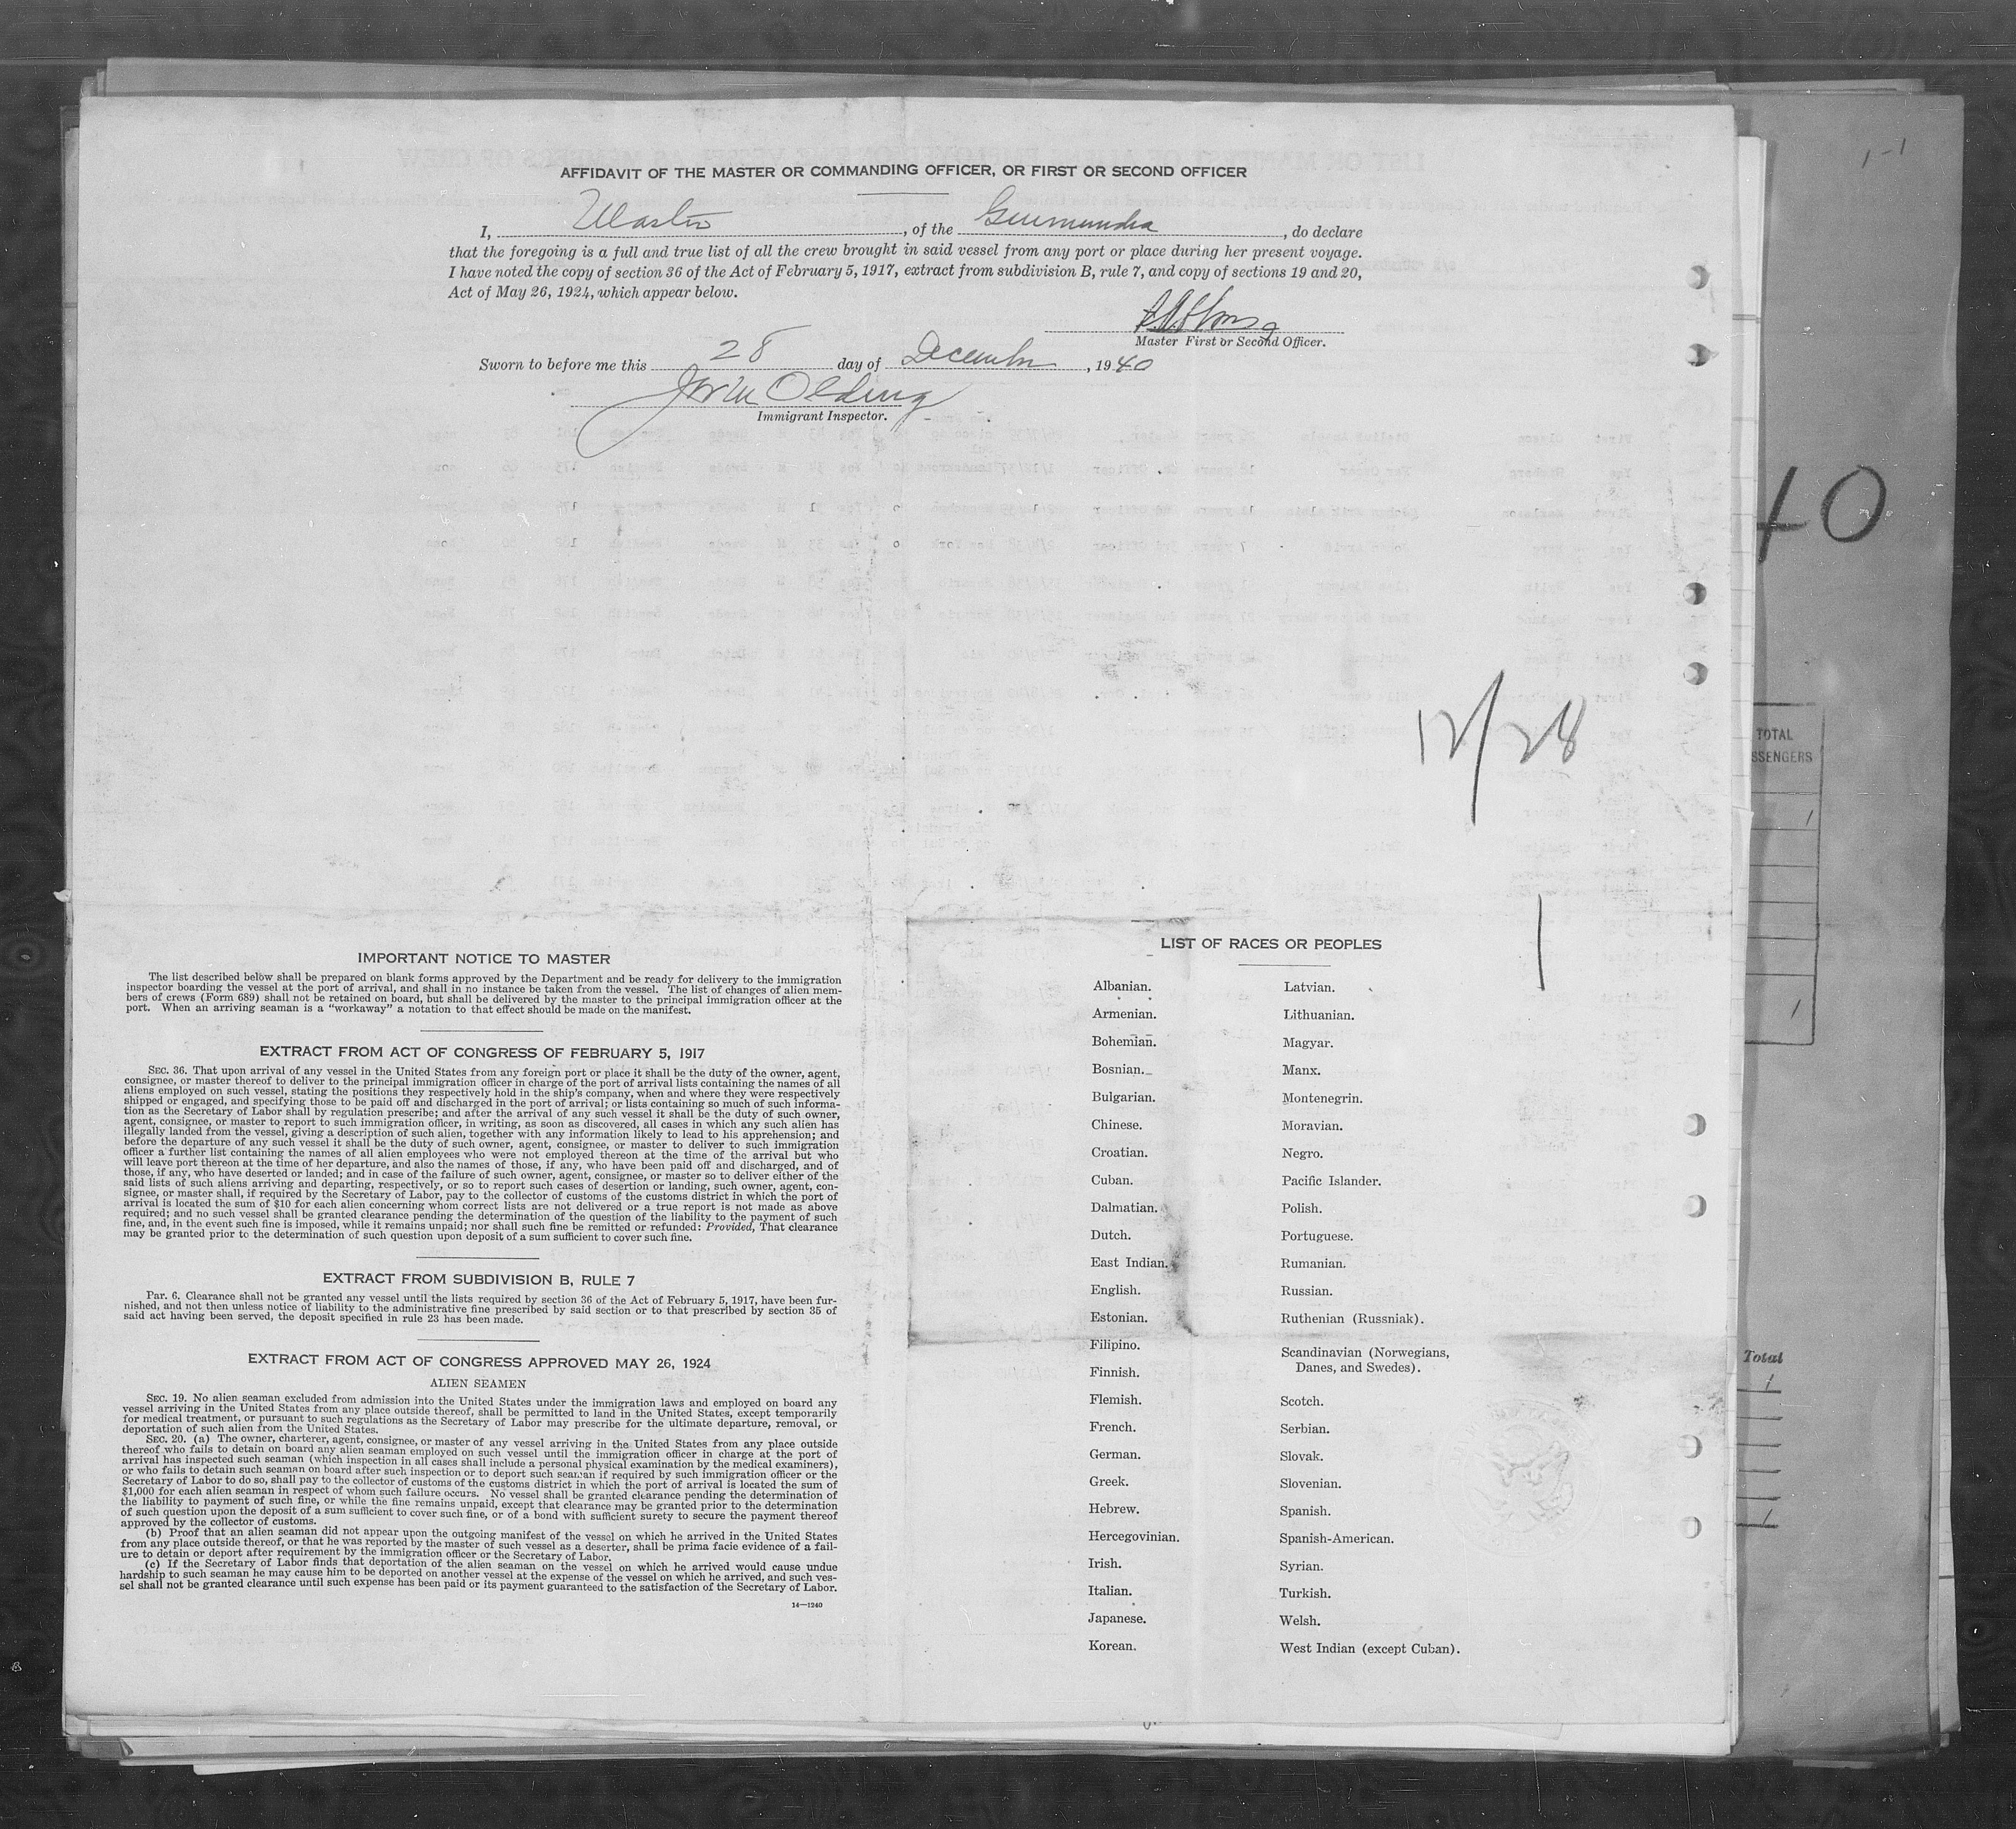 AFFIDAVIT OF THE MASTER OR COMMANDING OFFICER, OR FIRST OR SECOND OFFICER
I, Master, of the , do declare
that the foregoing is a full and true list of all the crew brought in said vessel from any port or place during her present voyage.
I have noted the copy of section 36 of the Act of February 5, 1917, extract from subdivision B, rule 7, and copy of sections 19 and 20,
Act of May 26, 1924, which appear below.
Master First or Second Officer.
Sworn to before me this 28 day of December, 1940
Olding
Immigrant Inspector.
1-1
40
12/28
TOTAL
SSENGERS
1
1
1
IMPORTANT NOTICE TO MASTER
The list described below shall be prepared on blank forms approved by the Department and be ready for delivery to the immigration
inspector boarding the vessel at the port of arrival, and shall in no instance be taken from the vessel. The list of changes of alien mem-
bers of crews (Form 689) shall not be retained on board, but shall be delivered by the master to the principal immigration officer at the
port. When an arriving seaman is a "workaway" a notation to that effect should be made on the manifest.
EXTRACT FROM ACT OF CONGRESS OF FEBRUARY 5, 1917
SEC. 36. That upon arrival of any vessel in the United States from any foreign port or place it shall be the duty of the owner, agent,
consignee, or master thereof to deliver to the principal immigration officer in charge of the port of arrival lists containing the names of all
aliens employed on such vessel, stating the positions they respectively hold in the ship's company, when and where they were respectively
shipped or engaged, and specifying those to be paid off and discharged in the port of arrival; or lists containing so much of such informa-
tion as the Secretary of Labor shall by regulation prescribe; and after the arrival of any such vessel it shall be the duty of such owner,
agent, consignee, or master to report to such immigration officer, in writing, as soon as discovered, all cases in which any such alien has
illegally landed from the vessel, giving a description of such alien, together with any information likely to lead to his apprehension; and
before the departure of any such vessel it shall be the duty of such owner, agent, consignee, or master to deliver to such immigration
officer a further list containing the names of all alien employees who were not employed thereon at the time of the arrival but who
will leave port thereon at the time of her departure, and also the names of those, if any, who have been paid off and discharged, and of
those, if any, who have deserted or landed; and in case of the failure of such owner, agent, consignee, or master so to deliver either of the
said lists of such aliens arriving and departing, respectively, or so to report such cases of desertion or landing, such owner, agent, con-
signee, or master shall, if required by the Secretary of Labor, pay to the collector of customs of the customs district in which the port of
arrival is located the sum of $10 for each alien concerning whom correct lists are not delivered or a true report is not made as above
required; and no such vessel shall be granted clearance pending the determination of the question of the liability to the payment of such
fine, and, in the event such fine is imposed, while it remains unpaid; nor shall such fine be remitted or refunded: Provided, That clearance
may be granted prior to the determination of such question upon deposit of a sum sufficient to cover such fine.
EXTRACT FROM SUBDIVISION B, RULE 7
Par. 6. Clearance shall not be granted any vessel until the lists required by section 36 of the Act of February 5, 1917, have been fur-
nished, and not then unless notice of liability to the administrative fine prescribed by said section or to that prescribed by section 35 of
said act having been served, the deposit specified in rule 23 has been made.
EXTRACT FROM ACT OF CONGRESS APPROVED MAY 26, 1924
ALIEN SEAMEN
SEC. 19. No alien seaman excluded from admission into the United States under the immigration laws and employed on board any
vessel arriving in the United States from any place outside thereof, shall be permitted to land in the United States, except temporarily
for medical treatment, or pursuant to such regulations as the Secretary of Labor may prescribe for the ultimate departure, removal, or
deportation of such alien from the United States.
SEC. 20. (a) The owner, charterer, agent, consignee, or master of any vessel arriving in the United States from any place outside
thereof who fails to detain on board any alien seaman employed on such vessel until the immigration officer in charge at the port of
arrival has inspected such seaman (which inspection in all cases shall include a personal physical examination by the medical examiners),
or who fails to detain such seaman on board after such inspection or to deport such seaman if required by such immigration officer or the
Secretary of Labor to do so, shall pay to the collector of customs of the customs district in which the port of arrival is located the sum of
$1,000 for each alien seaman in respect of whom such failure occurs. No vessel shall be granted clearance pending the determination of
the liability to payment of such fine, or while the fine remains unpaid, except that clearance may be granted prior to the determination
of such question upon the deposit of a sum sufficient to cover such fine, or of a bond with sufficient surety to secure the payment thereof
approved by the collector of customs.
(b) Proof that an alien seaman did not appear upon the outgoing manifest of the vessel on which he arrived in the United States
from any place outside thereof, or that he was reported by the master of such vessel as a deserter, shall be prima facie evidence of a fail-
ure to detain or deport after requirement by the immigration officer or the Secretary of Labor.
(c) If the Secretary of Labor finds that deportation of the alien seaman on the vessel on which he arrived would cause undue
hardship to such seaman he may cause him to be deported on another vessel at the expense of the vessel on which he arrived, and such ves-
sel shall not be granted clearance until such expense has been paid or its payment guaranteed to the satisfaction of the Secretary of Labor.
14—1240
LIST OF RACES OR PEOPLES
Albanian.
Armenian.
Bohemian.
Bosnian.
Bulgarian.
Chinese.
Croatian.
Cuban.
Dalmatian.
Dutch.
East Indian.
English.
Estonian.
Filipino.
Finnish.
Flemish.
French.
German.
Greek.
Hebrew.
Hercegovinian.
Irish.
Italian.
Japanese.
Korean.
Latvian.
Lithuanian.
Magyar.
Manx.
Montenegrin.
Moravian.
Negro.
Pacific Islander.
Polish.
Portuguese.
Rumanian.
Russian.
Ruthenian (Russniak).
Scandinavian (Norwegians,
Danes, and Swedes).
Scotch.
Serbian.
Slovak.
Slovenian.
Spanish.
Spanish-American.
Syrian.
Turkish.
Welsh.
West Indian (except Cuban).
Total